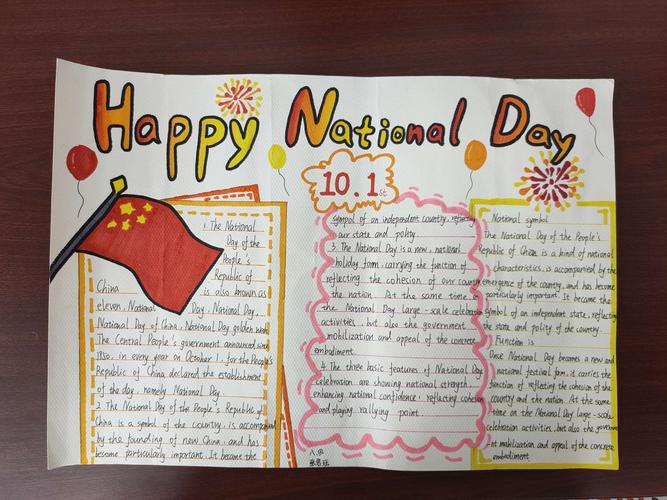 Happy National Day
10.1st
1. The National
Day of the
People's
Republic of
China is also known as
eleven, National Day, National Day,
National Day of China, National Day golden week
The Central People's government announced since
1950, in every year on October 1, for the People's
Republic of China declared the establishment
of the day, namely National Day
2. The National Day of the People's Republic of
China is a symbol of the country, is accompanied
by the founding of new China, and has
become particularly important. It became the
symbol of an independent country, reflecting
our state and polity.
3. The National Day is a new, national
holiday form, carrying the function of
reflecting the cohesion of our country
the nation. At the same time
the National Day large-scale celebration
activities, but also the government
mobilization and appeal of the concrete
embodiment.
4. The three basic features of National Day
celebration are showing national strength,
enhancing national confidence, reflecting cohesion
and playing rallying point
National symbol
The National Day of the People's
Republic of China is a kind of national
characteristics, is accompanied by the
emergence of the country, and has become
particularly important. It became the
symbol of an independent state, reflecting
the state and polity of the country.
Function is
Once National Day becomes a new and
national festival form, it carries the
function of reflecting the cohesion of the
country and the nation. At the same
time on the National Day large-scale
celebration activities, but also the government
mobilization and appeal of the concrete
embodiment